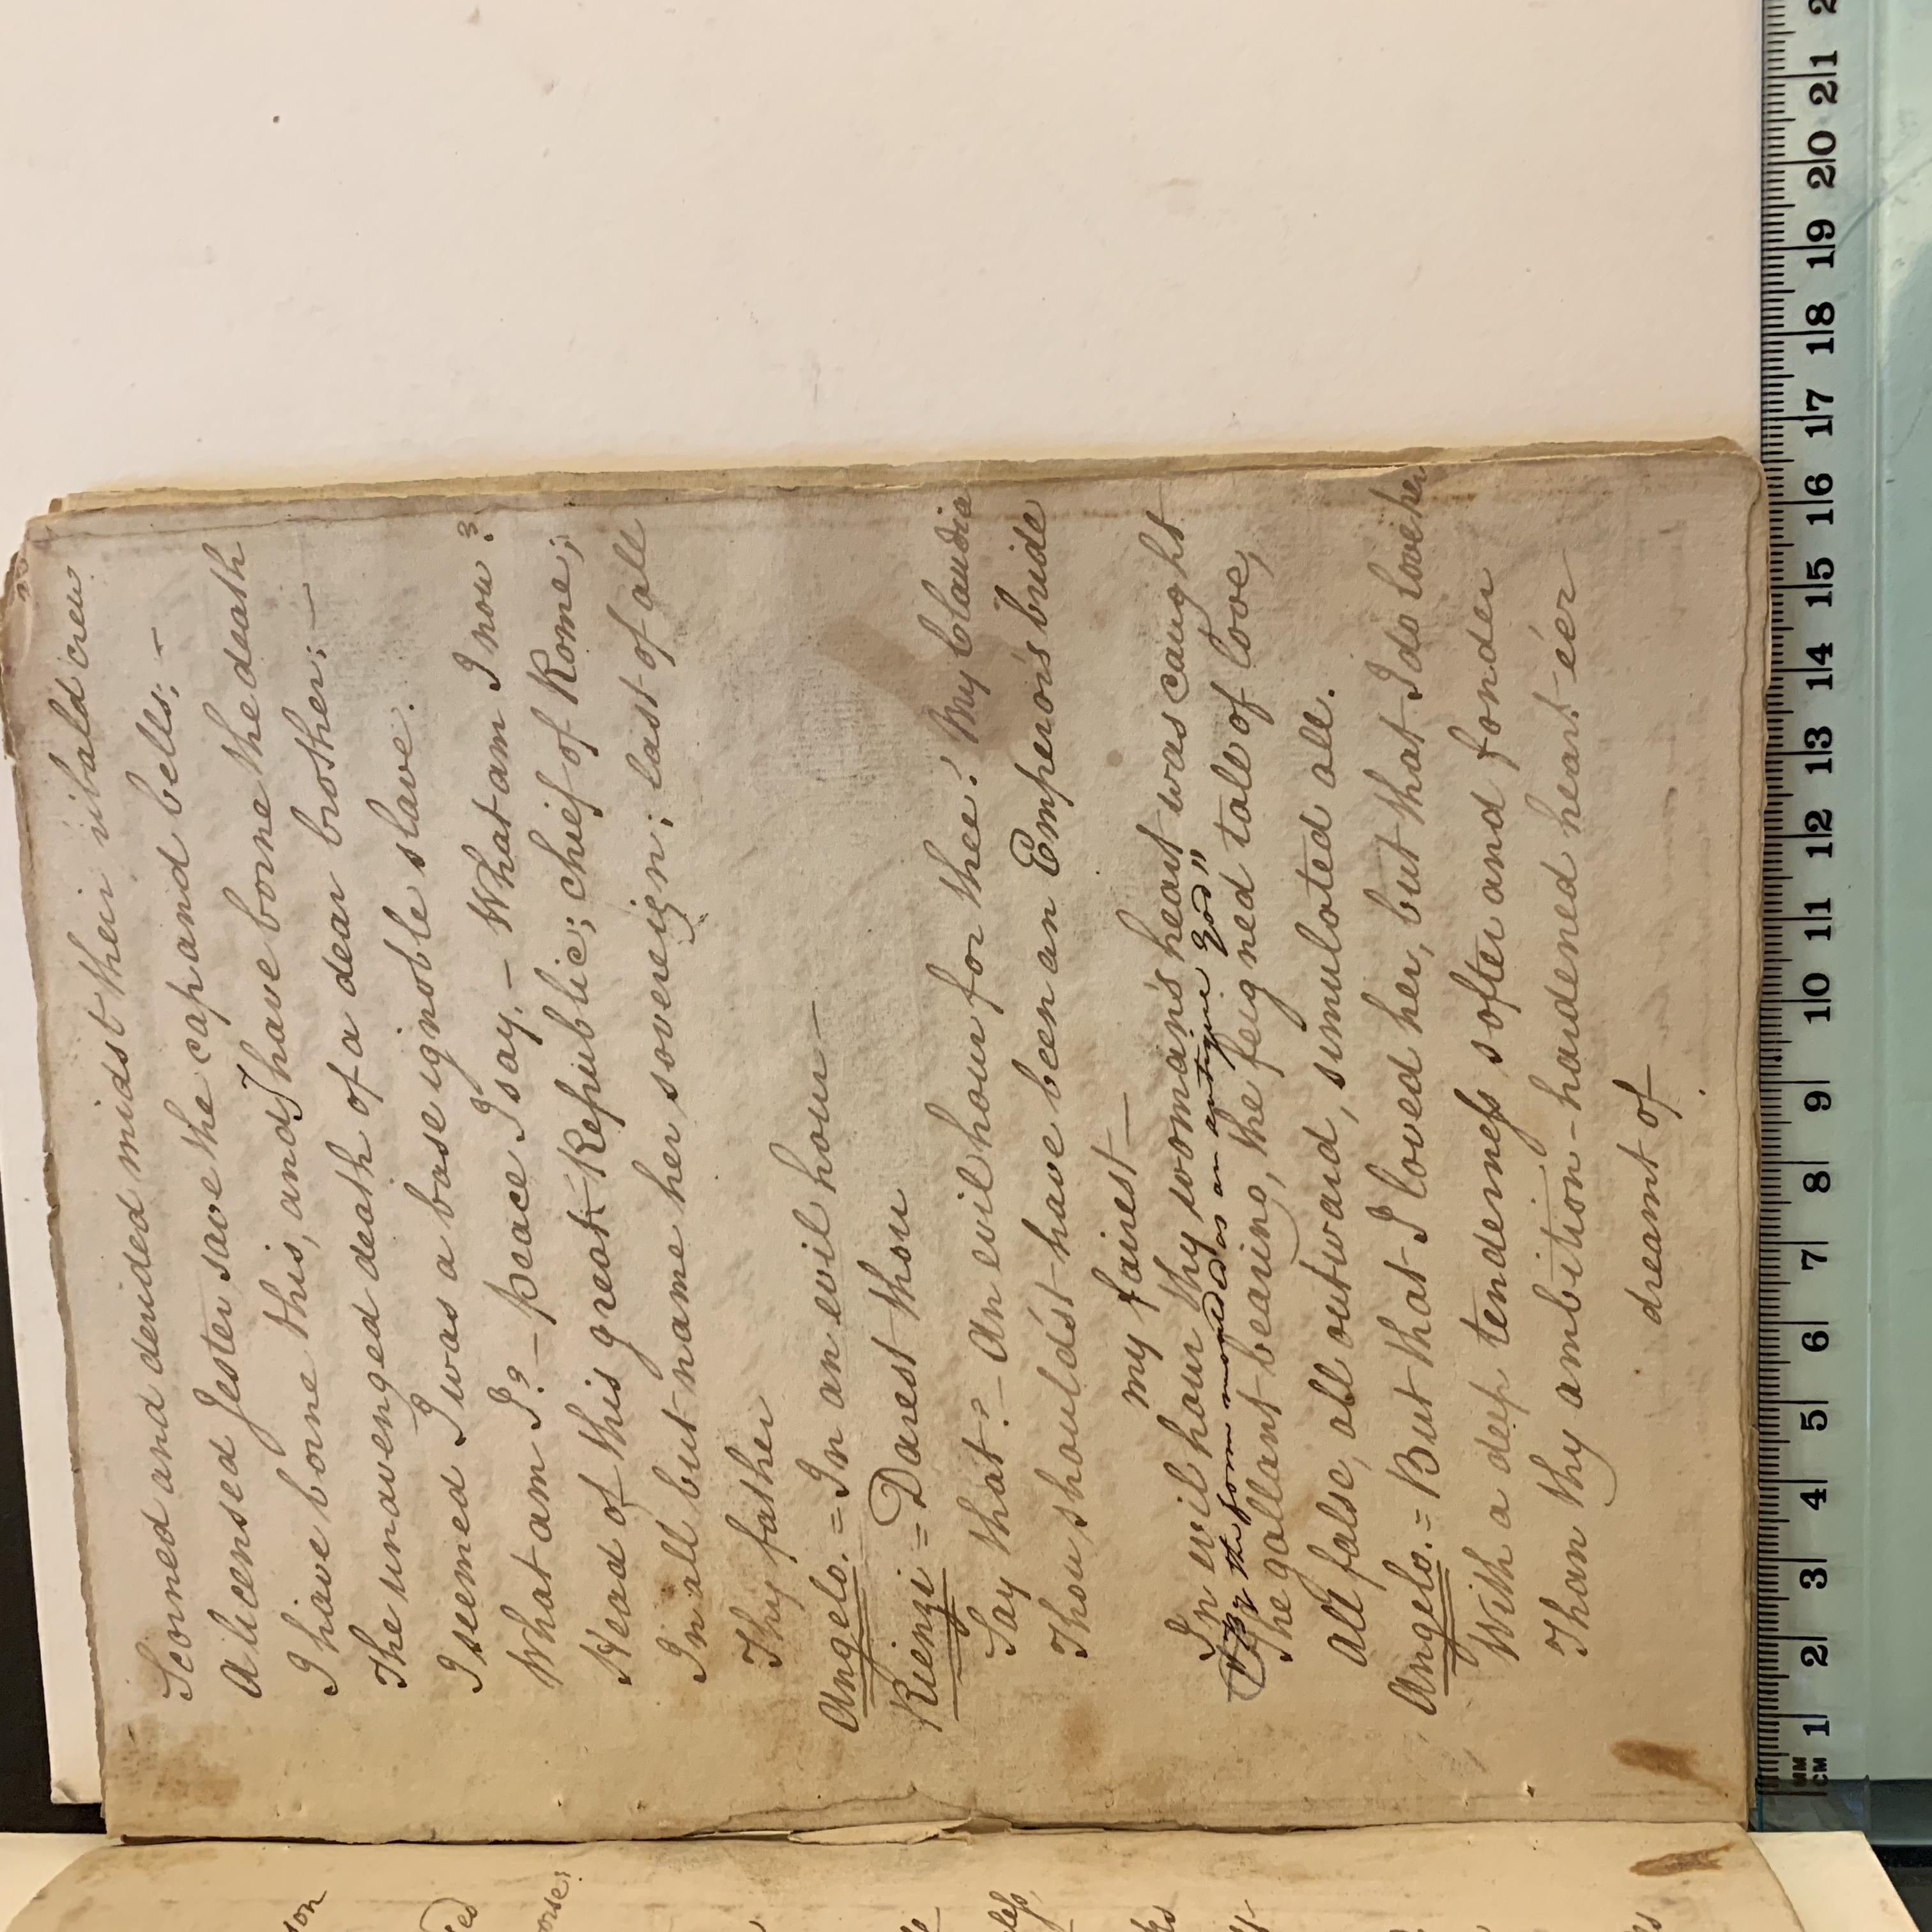 Scorned and derided midst their ribald crew
A licensed Jester save the cap and bells; -
I have borne this, and I have borne the death
The unavenged death of a dear brother; -
I seemed I was a base ignoble slave.
What am I? - peace I say. - What am I now?
Head of this great Republic; chief of Rome;
In all but name her sovereign; last of all
Thy father
Angelo. = In an evil hour -
Rienzi = Darest thou
Say that? - An evil hour for thee! My Claudia
Thou should'st have been an Emperor's bride
my fairest -
In evil hour thy woman's heart was caught
"By the form moulded as an antique God"
The gallant bearing, the feigned tale of love,
All false, all outward, simulated all.
Angelo. = But that I loved her, but that I do love her
With a deep tenderneſs softer and fonder
Than thy ambition - hardened heart e'er
dreamt of
MM
CM 1 2 3 4 5 6 7 8 9 10 11 12 13 14 15 16 17 18 19 20 21